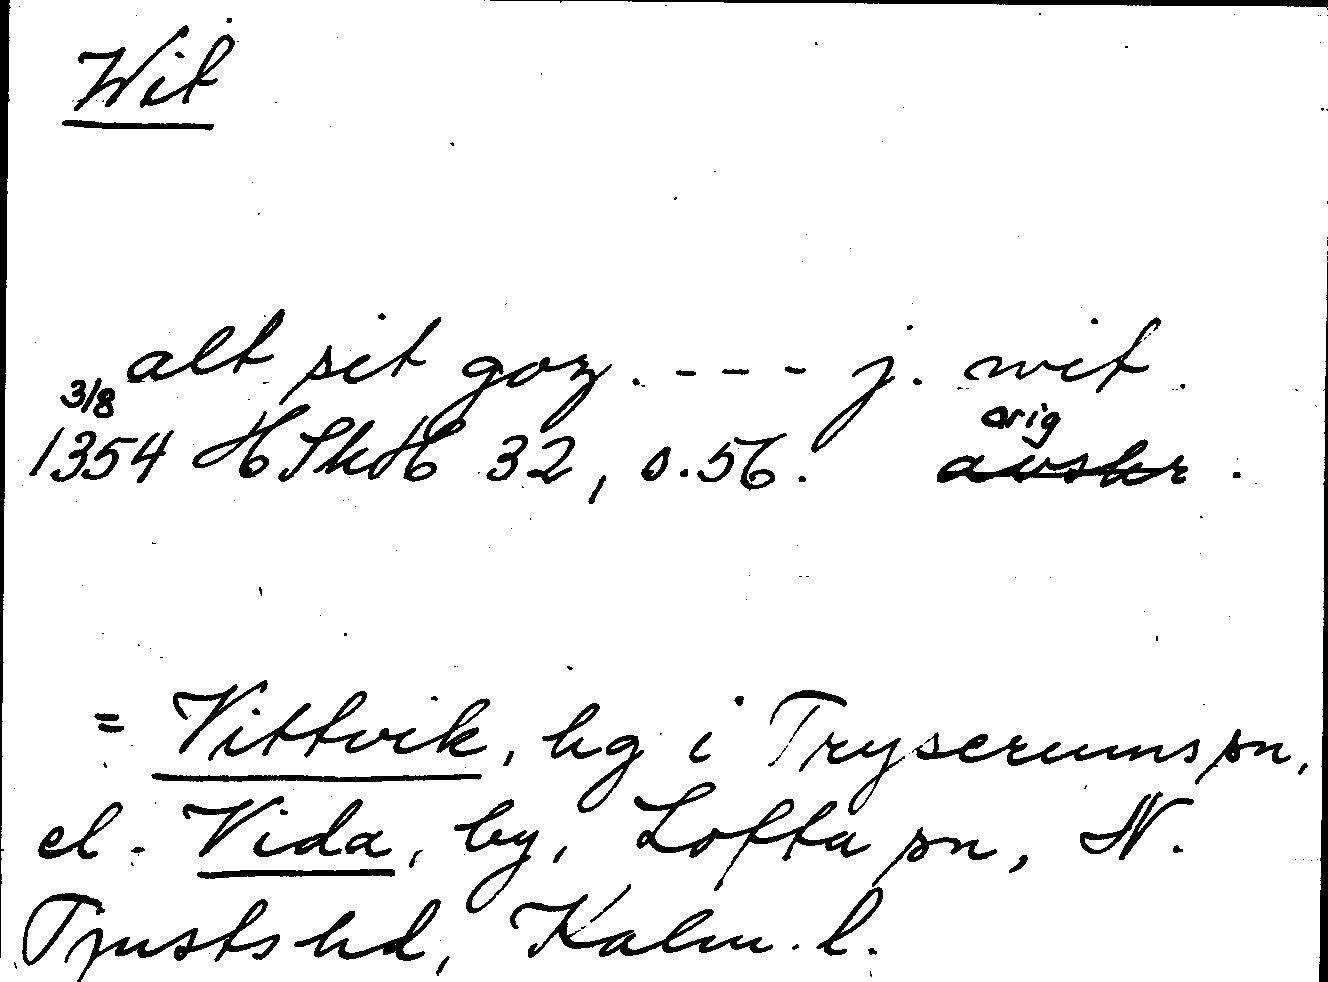 Wit
alt sit goz. - - - j. wit.
3/8 orig
1354 HSkH 32, s.56. avskr.
= Vittvik, hg i Tryserums sn,
el. Vida, by, Lofta sn, N.
Tjusts hd, Kalm. l.